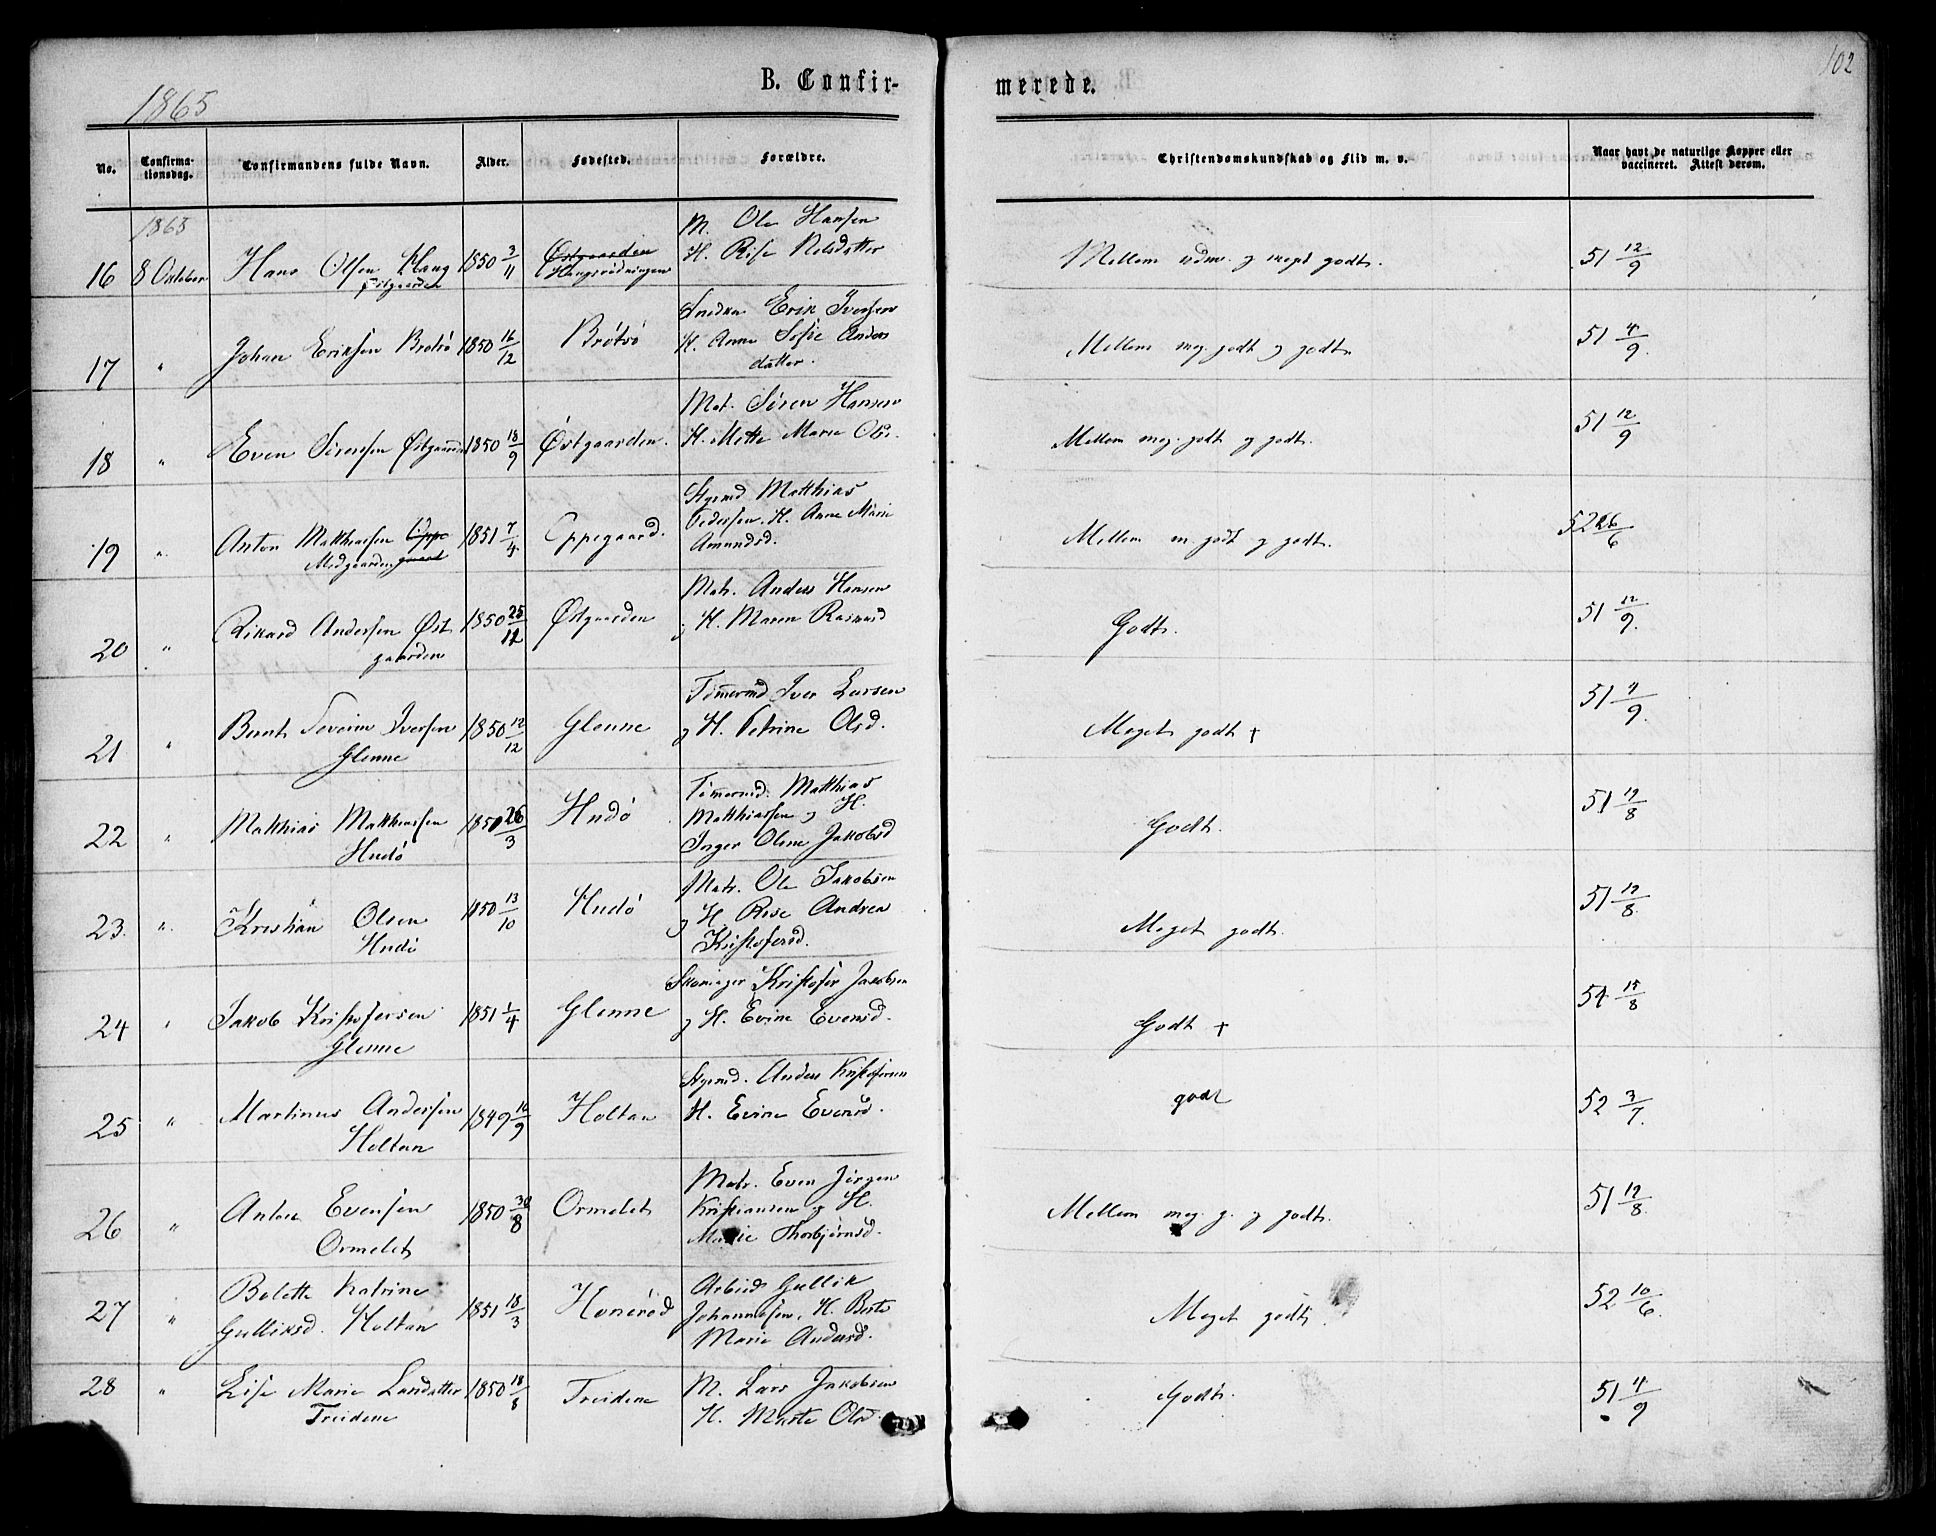 102
B. Confir-
merede.
1865
No.
Confirma-
tionsdag.
Confirmandens fulde Navn.
Alder.
Fødested.
Forældre.
Christendomskundskab og Flid m. v.
Naar havt de naturlige Kopper eller
vaccineret. Attest derom.
1865
M. Ole Hansen
16 8 Oktober Hans Olsen Haug 1850 3/11 Østgaarden H. Rise Nilsdatter Mellem udm. og meget godt. 51 12/9
Østgaarden Haugsrødningen
Snedker Erik Iversen
17 " Johan Eriksen Brøtsø 1850 16/12 Brøtsø H. Anne Sofie Anders Mellem meg. godt og godt. 51 4/9.
datter.
Mat. Søren Hansen
18 " Even Sørensen Østgaarden 1850 18/9 Østgaarden. H. Mette Marie Olsd. Mellem meg. godt og godt. 51 12/9
Styrmd Matthias
19 " Anton Matthiassen Oppe 1851 7/4 Oppegaard. Pedersen. H. Anne Marie Mellem m. godt og godt. 52 26/6
Midgaarden gaard Amundsd.
Matr. Anders Hansen
20 " Rikard Andersen Øst 1850 25/12 Østgaarden og H. Maren Rasmusd Godt. 51 12/9.
gaarden
Tømmermd Iver Larsen
21 " Bernt Severin Iversen 1850 12/12 Glenne og H. Petrine Olsd. Meget godt + 51 4/9.
Glenne
Tømmermd. Matthias
22 " Matthias Matthiassen 1851 26/3 Hudø Matthiassen og H. Godt. 51 12/8
Hudø Inger Oline Jakobsd
Matr. Ole Jakobsen
23 " Kristian Olsen 1850 13/10 Hudø og H. Rise Andrea Meget godt. 51 12/8.
Hudø Kristofersd.
Skomager Kristofer Jakobsen
24 " Jakob Kristofersen 1851 1/4 Glenne og H. Evine Evensd. Godt + 51 15/8
Glenne
Styrmd. Anders Kristofersen
25 " Martinus Andersen 1849 16/9 Holtan H. Evine Evensd. godt 52 3/7.
Holtan
Matr. Even Jørgen
26 " Anton Evensen 1850 30/8 Ormelet Kristiansen og H. Mellem meg. g. og godt. 51 12/8.
Ormelet Marie Thorbjørnsd.
Bolette Katrine Arbeid Gullik
27 " Gulliksd. Holtan 1851 18/3 Honerød Johannesen, H. Berte Meget godt. 52 10/6.
Marie Andersd.
28 " Lise Marie Larsdatter 1850 18/8 Treidene M. Lars Jakobsen Godt. 51 4/9
Treidene H. Marte Olsd.